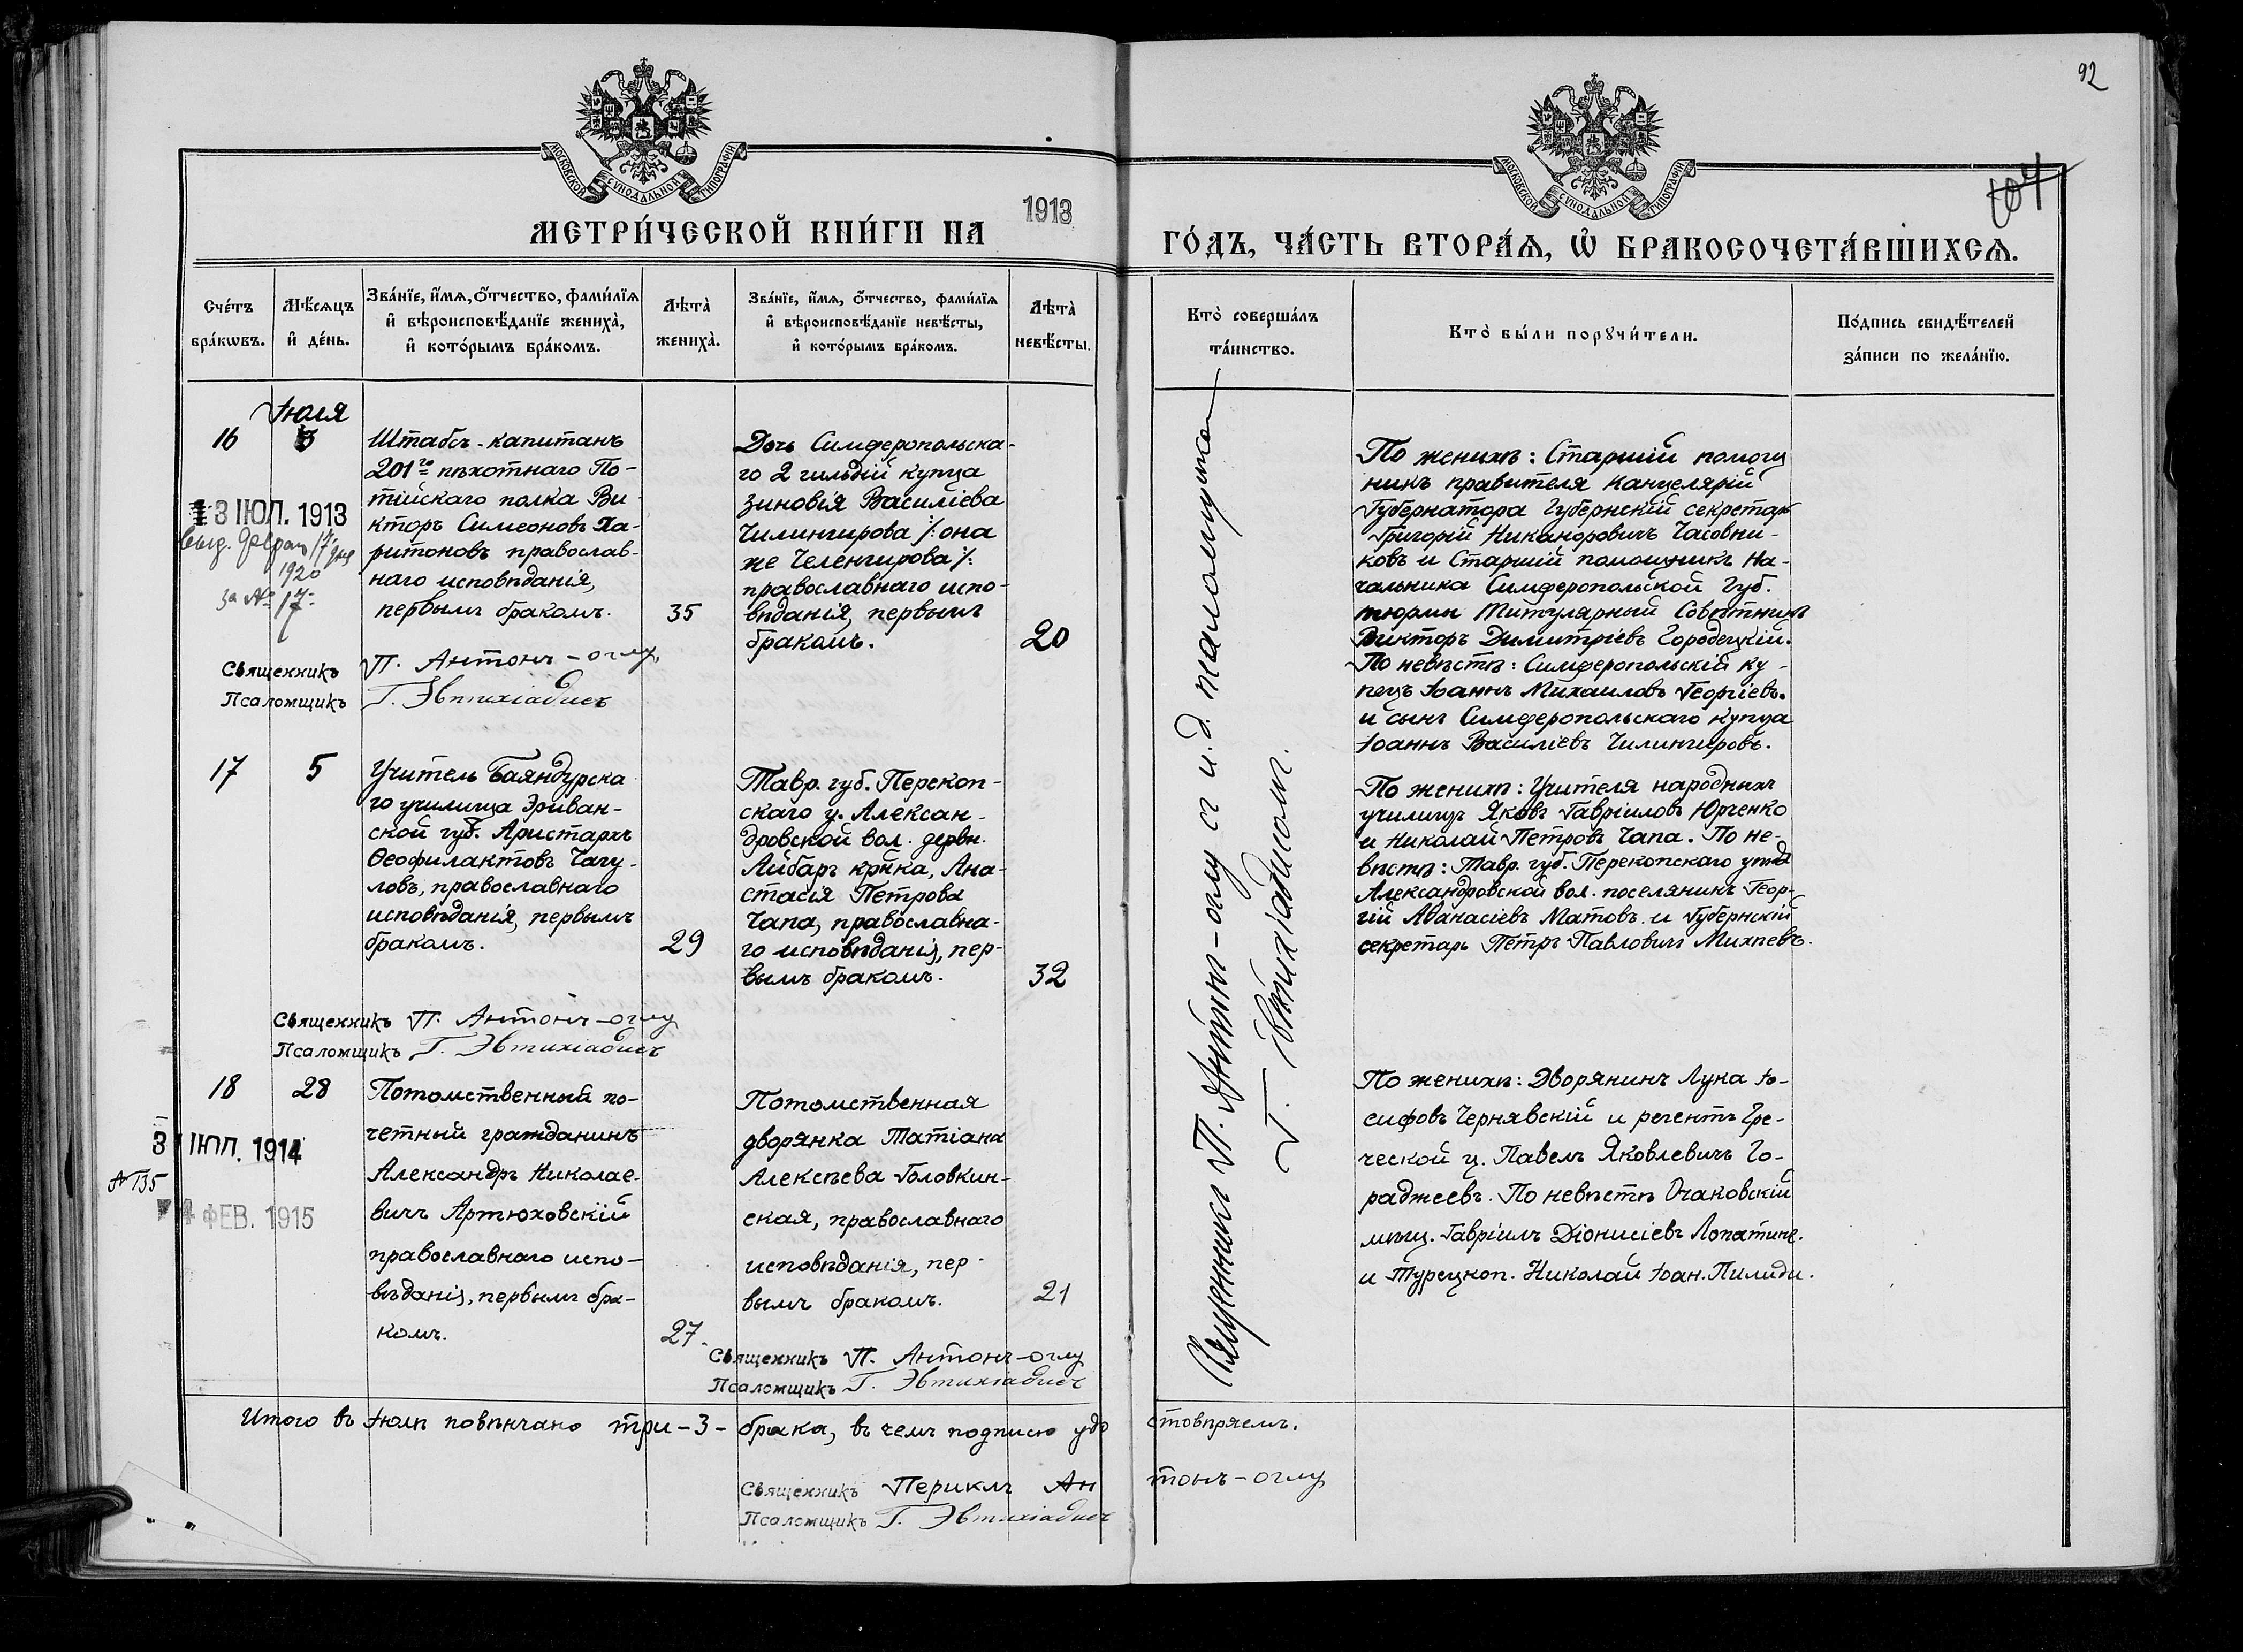 92
104
МОСКОВСКОЙ СѴНОДАЛЬНОЙ ТИПОГРАФІИ
МОСКОВСКОЙ СѴНОДАЛЬНОЙ ТИПОГРАФІИ
МЕТРИ́ЧЕСКОЙ КНИ́ГИ НА 1913 ГО́ДЪ, ЧА́СТЬ ВТОРА́Ѧ, Ѡ҆ БРАКОСОЧЕТА́ВШИХСѦ.
Сче́тъ бра́кѡвъ.
Мѣ́сѧцъ и҆ де́нь.
Зва́нїе, и҆́мѧ, ѻ҆́тчество, фами́лїѧ
и҆ вѣроисповѣ́данїе жениха̀,
и҆ кото́рымъ бра́комъ.
Лѣта̀ жениха̀.
Зва́нїе, и҆́мѧ, ѻ҆́тчество, фами́лїѧ
и҆ вѣроисповѣ́данїе невѣ́сты,
и҆ кото́рымъ бра́комъ.
Лѣта̀ невѣ́сты.
Кто̀ соверша́лъ
та́инство.
Кто̀ бы́ли порꙋчи́тели.
По́дпись свидѣ́телей
за́писи по жела́нїю.
Іюля
16
3
13 ІЮЛ. 1913
1920
за № 17
Штабсъ-капитанъ
201го пѣхотнаго По-
тійскаго полка Ви-
кторъ Симеоновъ Ха-
ритоновъ православ-
наго исповѣданія,
первымъ бракомъ.
35
Дочь Симферопольска-
го 2 гильдій купца
Зиновія Василіева
Чилингирова /: она
же Челенгирова /:
православнаго испо-
вѣданія, первымъ
бракомъ.
20
Священникъ П. Антонъ-оглу
Псаломщикъ Г. Эвтихіадисъ
Священникъ П. Антонъ-оглу съ и.д. псаломщика
Г. Эвтихіадисомъ.
По женихѣ: Старшій помощ
никъ правителя канцелярій
Губернатора Губернскій секретарь
Григорій Никаноровичъ Часовни-
ковъ и Старшій помощникъ На-
чальника Симферопольской Губ.
тюрмы Титулярный Совѣтникъ
Викторъ Димитріевъ Городецкій.
По невѣстѣ: Симферопольскій ку-
пецъ Іоаннъ Михаиловъ Георгіевъ.
и сынъ Симферопольскаго купца
Іоаннъ Василіевъ Чилингировъ.
17
5
Учитель Баяндурска
го училища Эриван-
ской губ. Аристархъ
Ѳеофилактовъ Чагу-
ловъ, православнаго
исповѣданія, первымъ
бракомъ.
29
Тавр. губ. Перекоп-
скаго у. Алексан-
дровской вол. дервн.
Айбаръ крѣка, Ана-
стасія Петрова
Чапа, православна-
го исповѣданія, пер-
вымъ бракомъ.
32
Священникъ П. Антонъ-оглу
Псаломщикъ Г. Эвтихіадисъ
По женихѣ: Учителя народныхъ
училищъ Яковъ Гавріиловъ Юрченко
и Николай Петровъ Чапа. По не-
вѣстѣ: Тавр. губ. Перекопскаго уѣзда
Александровской вол. поселянинъ Геор-
гій Аѳанасіевъ Матовъ. и Губернскій
секретарь Петръ Павловичъ Михневъ.
18
28
31 ІЮЛ. 1914
№ 135
4 ФЕВ. 1915
Потомственный по-
четный гражданинъ
Александръ Николае-
вичъ Артюховскій
православнаго испо-
вѣданія, первымъ бра-
комъ.
27.
Потомственная
дворянка Татіана
Алексѣева Головкин-
ская, православнаго
исповѣданія, пер-
вымъ бракомъ.
21
Священникъ П. Антонъ-оглу
Псаломщикъ Г. Эвтихіадисъ
По женихѣ: Дворянинъ Лука Іо-
сифовъ Чернявскій и регентъ Гре-
ческой ц. Павелъ Яковлевичъ Го-
раджеевъ. По невѣстѣ Очаковскій
мѣщ. Гавріилъ Діонисіевъ Лопатинъ.
и Турецкоп. Николай Іоан. Пилиди.
Итого въ Іюлѣ повѣнчано три-3-брака, въ чемъ подписю удо стовѣряемъ.
Священникъ Периклъ Ан тонъ-оглу
Псаломщикъ Г. Эвтихіадисъ